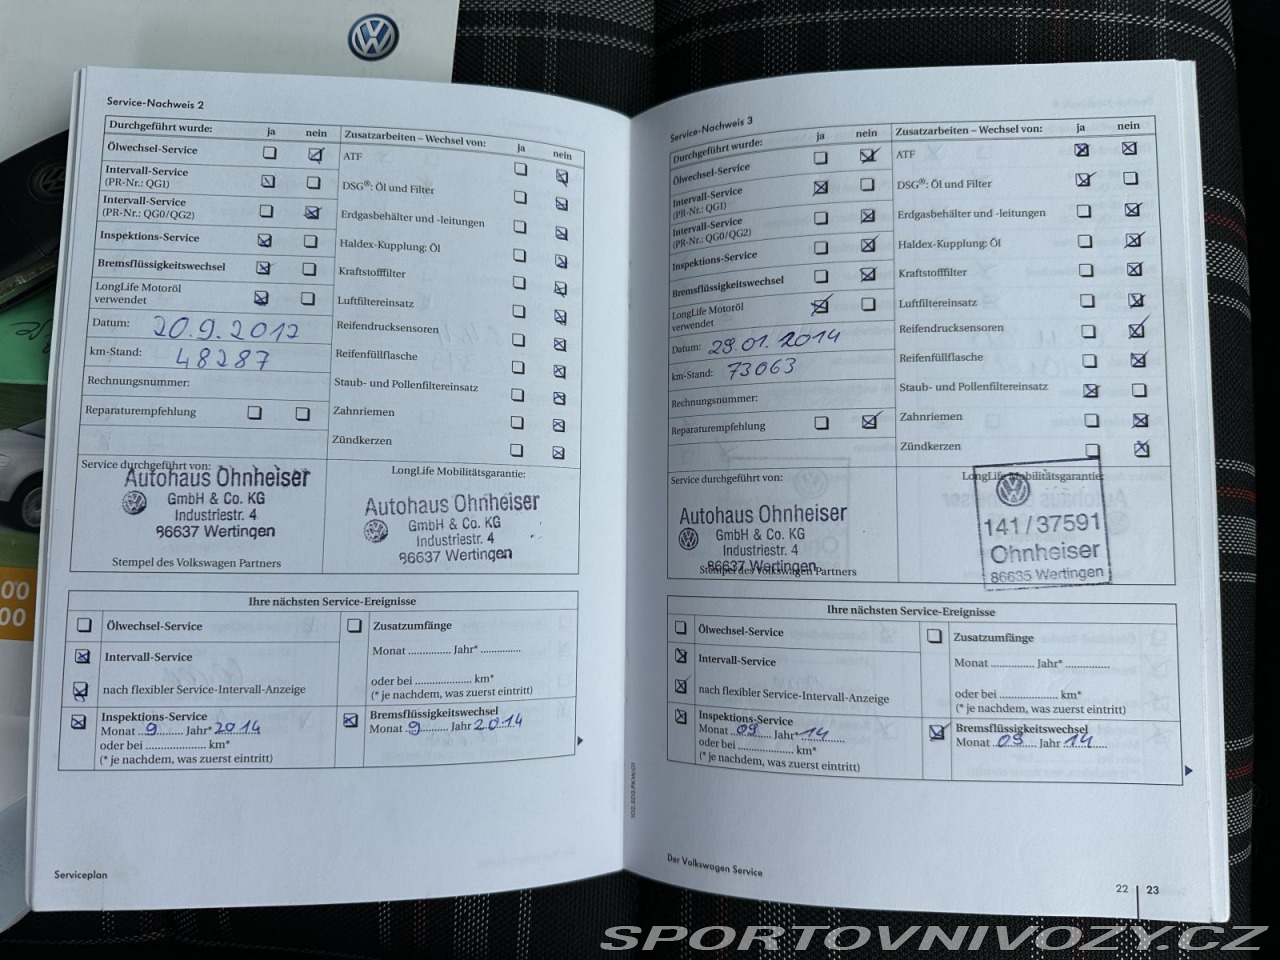 Service-Nachweis 2
Durchgeführt wurde: ja nein
Ölwechsel-Service
Intervall-Service
(PR-Nr.: QG1)
Intervall-Service
(PR-Nr.: QG0/QG2)
Inspektions-Service
Bremsflüssigkeitswechsel
LongLife Motoröl
verwendet
Datum: 20.9.2012
km-Stand: 48287
Rechnungsnummer:
Reparaturempfehlung
Zusatzarbeiten – Wechsel von: ja nein
ATF
DSG®: Öl und Filter
Erdgasbehälter und -leitungen
Haldex-Kupplung: Öl
Kraftstofffilter
Luftfiltereinsatz
Reifendrucksensoren
Reifenfüllflasche
Staub- und Pollenfiltereinsatz
Zahnriemen
Zündkerzen
Service durchgeführt von:
Autohaus Ohnheiser
GmbH & Co. KG
Industriestr. 4
86637 Wertingen
Stempel des Volkswagen Partners
LongLife Mobilitätsgarantie:
Autohaus Ohnheiser
GmbH & Co. KG
Industriestr. 4
86637 Wertingen
Ihre nächsten Service-Ereignisse
Ölwechsel-Service
Intervall-Service
nach flexibler Service-Intervall-Anzeige
Zusatzumfänge
Monat .............. Jahr* .............
oder bei .................... km*
(* je nachdem, was zuerst eintritt)
Inspektions-Service
Monat 9 Jahr* 2014
oder bei .................... km*
(* je nachdem, was zuerst eintritt)
Bremsflüssigkeitswechsel
Monat 9 Jahr 2014
Serviceplan
Service-Nachweis 3
Durchgeführt wurde: ja nein
Ölwechsel-Service
Intervall-Service
(PR-Nr.: QG1)
Intervall-Service
(PR-Nr.: QG0/QG2)
Inspektions-Service
Bremsflüssigkeitswechsel
LongLife Motoröl
verwendet
Datum: 29.01.2014
km-Stand: 73063
Rechnungsnummer:
Reparaturempfehlung
Zusatzarbeiten – Wechsel von: ja nein
ATF
DSG®: Öl und Filter
Erdgasbehälter und -leitungen
Haldex-Kupplung: Öl
Kraftstofffilter
Luftfiltereinsatz
Reifendrucksensoren
Reifenfüllflasche
Staub- und Pollenfiltereinsatz
Zahnriemen
Zündkerzen
Service durchgeführt von:
Autohaus Ohnheiser
GmbH & Co. KG
Industriestr. 4
86637 Wertingen
Stempel des Volkswagen Partners
LongLife Mobilitätsgarantie:
141/37591
Ohnheiser
86635 Wertingen
Ihre nächsten Service-Ereignisse
Ölwechsel-Service
Intervall-Service
nach flexibler Service-Intervall-Anzeige
Zusatzumfänge
Monat .............. Jahr* .............
oder bei .................... km*
(* je nachdem, was zuerst eintritt)
Inspektions-Service
Monat 09 Jahr* 14
oder bei .................... km*
(* je nachdem, was zuerst eintritt)
Bremsflüssigkeitswechsel
Monat 09 Jahr 14
Der Volkswagen Service
22 | 23
SPORTOVNIVOZY.CZ